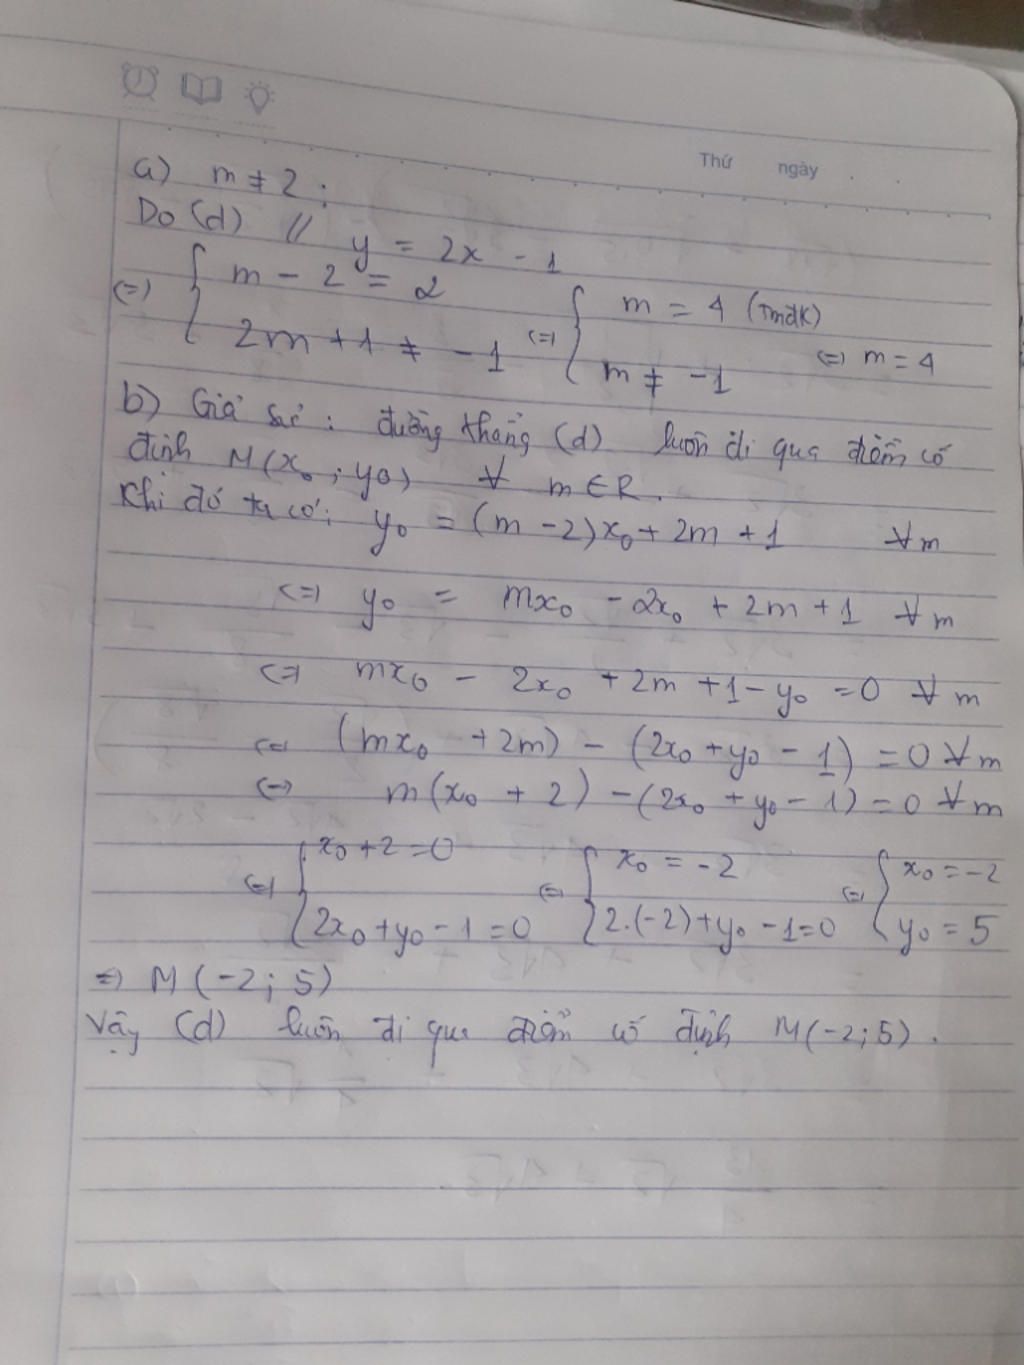 Thứ ngày
a) m ≠ 2 ;
Do (d) // y = 2x - 1
(=) { m - 2 = 2
2m + 1 ≠ -1 (=) { m = 4 (TmđK)
m ≠ -1 (=) m = 4
b) Giả sử : đường thẳng (d) luôn đi qua điểm cố
định M(x₀ ; y₀) ∀ m ∈ R.
Khi đó ta có: y₀ = (m - 2)x₀ + 2m + 1 ∀ m
(=) y₀ = mx₀ - 2x₀ + 2m + 1 ∀ m
(=) mx₀ - 2x₀ + 2m + 1 - y₀ = 0 ∀ m
(=) (mx₀ + 2m) - (2x₀ + y₀ - 1) = 0 ∀ m
(=) m(x₀ + 2) - (2x₀ + y₀ - 1) = 0 ∀ m
(=) { x₀ + 2 = 0
2x₀ + y₀ - 1 = 0 (=) { x₀ = -2
2.(-2) + y₀ - 1 = 0 (=) { x₀ = -2
y₀ = 5
=) M (-2; 5)
Vậy (d) luôn đi qua điểm cố định M(-2; 5).